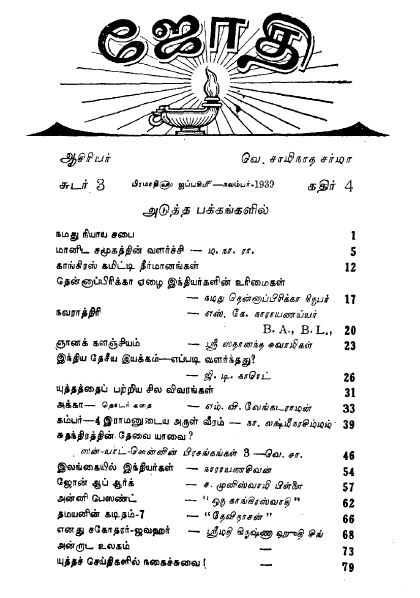 ஜோதி
ஆசிரியர் வெ. சாமிநாத சர்மா
சுடர் 3 பிரமாதி௵ ஐப்பசி௴—நவம்பர்-1939 கதிர் 4
அடுத்த பக்கங்களில்
நமது நியாய சபை 1
மானிட சமூகத்தின் வளர்ச்சி — டி. நா. ரா. 5
காங்கிரஸ் கமிட்டி தீர்மானங்கள் 12
தென்னாப்பிரிக்கா ஏழை இந்தியர்களின் உரிமைகள்
— நமது தென்னாப்பிரிக்கா நிருபர் 17
நவராத்திரி — எஸ். கே. நாராயணய்யர்
B. A., B. L., 20
ஞானக் களஞ்சியம் — ஸ்ரீ ஸதானந்த சுவாமிகள் 23
இந்திய தேசீய இயக்கம்—எப்படி வளர்ந்தது?
— ஜி. டி. காரெட் 26
யுத்தத்தைப் பற்றிய சில விவரங்கள் 31
அக்கா— தொடர் கதை — எம். வி. வேங்கடராமன் 33
கம்பர்—4 இராமனுடைய அருள் வீரம் — நா. லக்ஷ்மீநரசிம்மம் 39
சுதந்திரத்தின் தேவை யாவை?
ஸன்-யாட்-ஸென்னின் பிரசங்கங்கள் 3 —வெ. சா. 46
இலங்கையில் இந்தியர்கள் — நாராயணசிவன் 54
ஜோன் ஆப் ஆர்க் — ச. முனிஸ்வாமி பிள்ளை 57
அன்னி பெஸண்ட் — "ஒரு காங்கிரஸ்வாதி" 62
தமயனின் கடிதம்-7 — "தேவிதாசன்" 66
எனது சகோதரர்-ஜவஹர் — ஸ்ரீமதி கிருஷ்ணா ஹுதி சிங் 68
அன்றாட உலகம் — 73
யுத்தச் செய்திகளில் நகைச்சுவை! — 79